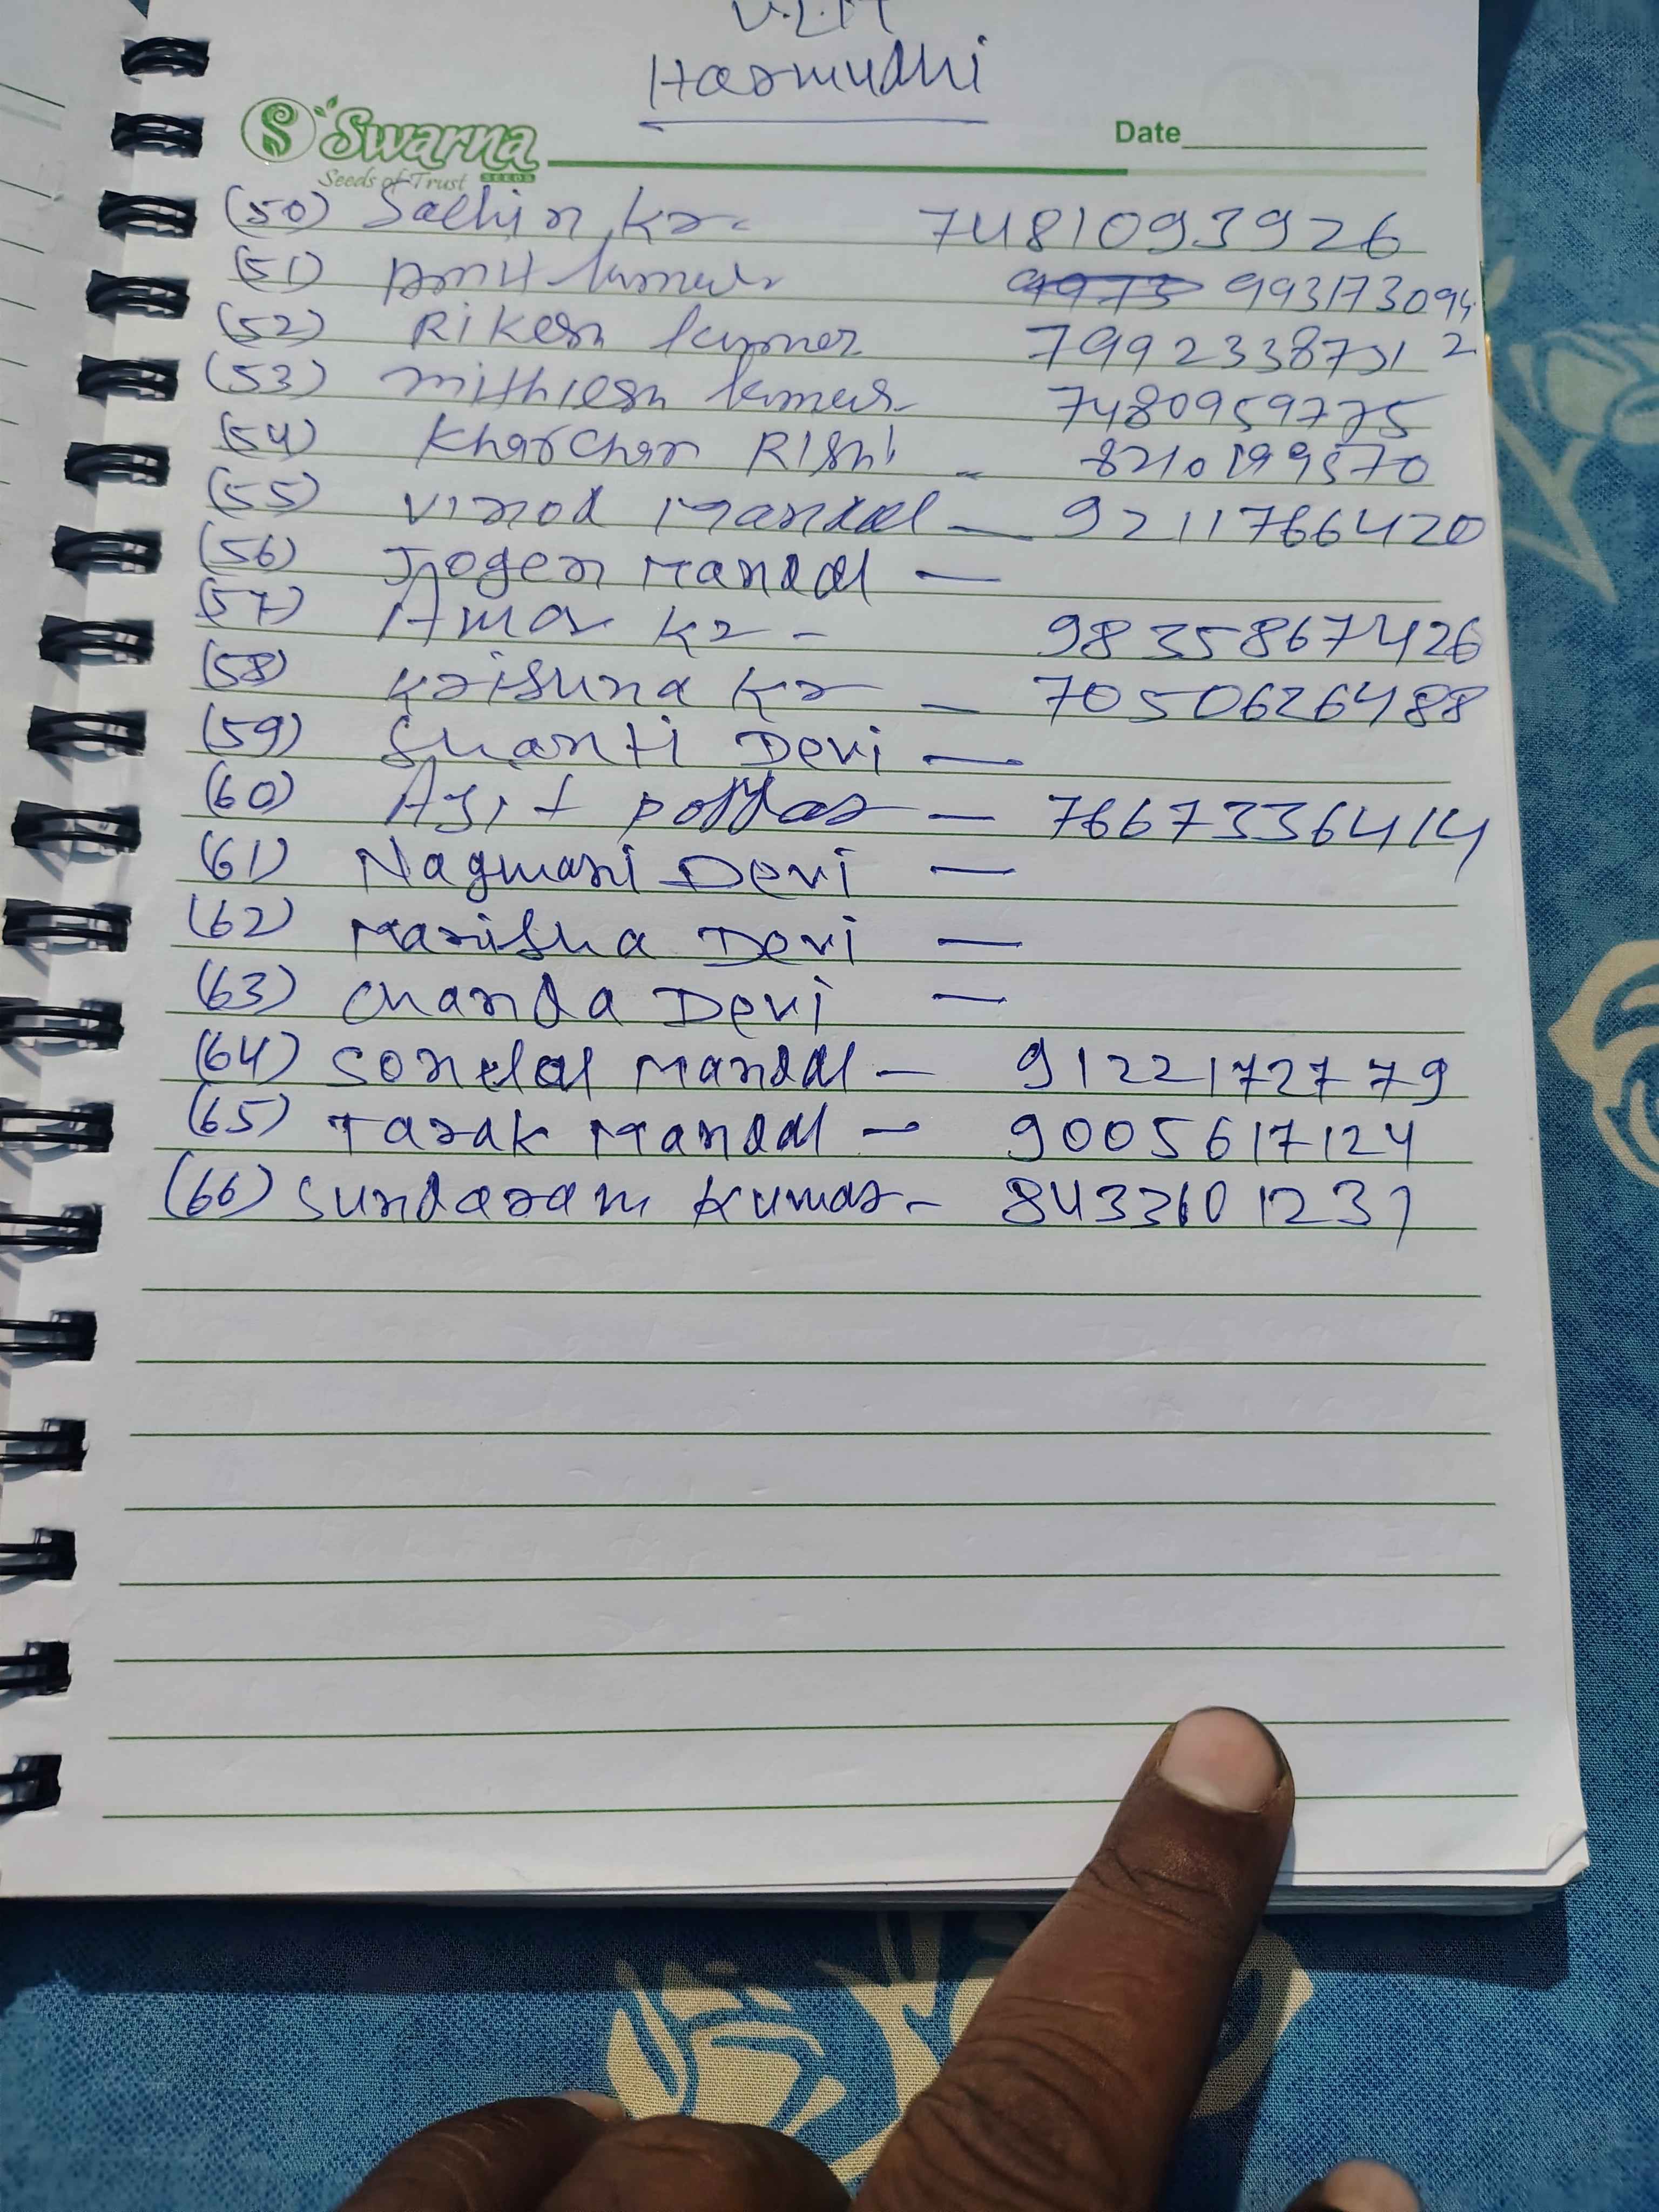 Harmudhi
Swarna
Seeds of Trust SEEDS
Date
(50) Sachin Kr. 7481093926
(51) Amit kumar 9973 993173094
(52) Rikesh kumar
(53) mithlesh kumar 7480959775
(54) Kharchan RIShi -
(55) vinod Mandal — 9211766420
(56) Jogen Mandal —
(57) Amar Kr - 9835867426
(58) Krishna Kr — 7050626488
(59) Shanti Devi —
(60) Ajit poddar — 7667336414
(61) Nagmani Devi —
(62) Manisha Devi —
(63) Chanda Devi —
(64) Sonelal Mandal — 9122172779
(65) Tarak Mandal — 9005617124
(66) Sundaram Kumar -